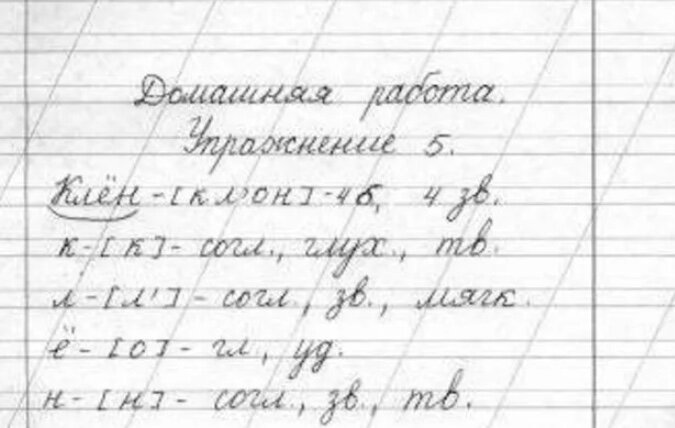 Домашняя работа.
Упражнение 5.
Клён - [кл'он] - 4б, 4 зв.
к - [к] - согл., глух., тв.
л - [л'] - согл., зв., мягк.
ё - [о] - гл, уд.
н - [н] - согл., зв., тв.